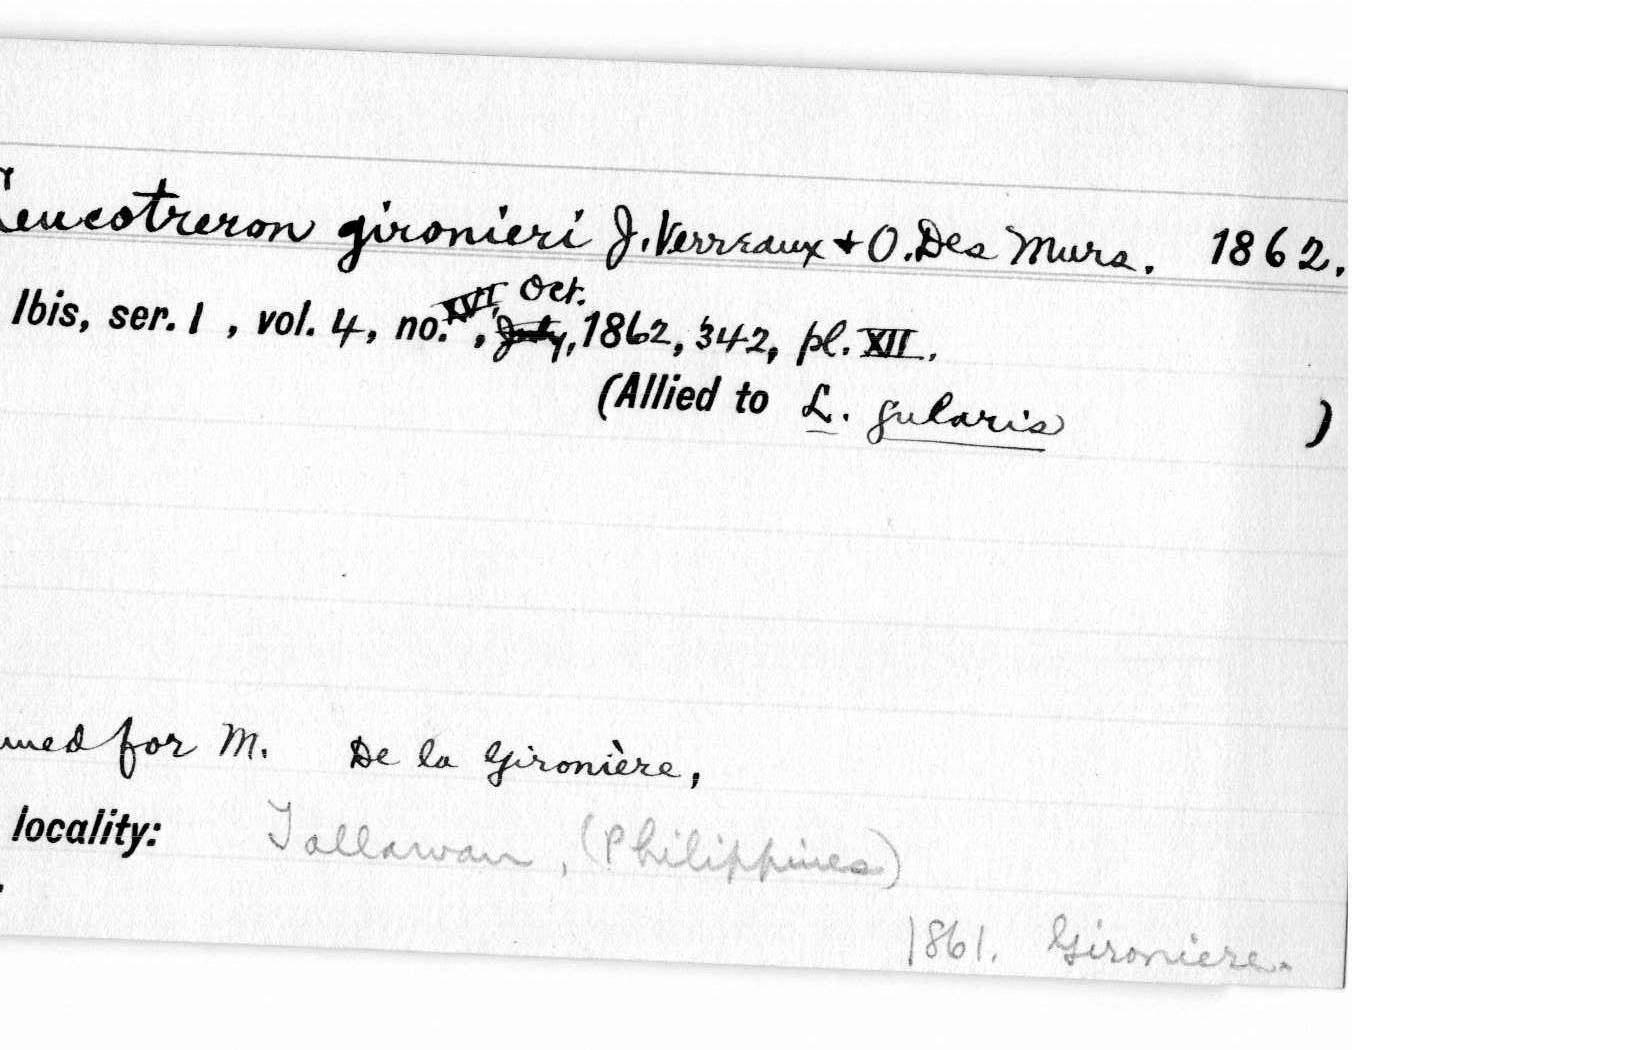 Leucotreron gironieri J. Verreaux + O. Des Murs. 1862.
Ibis, ser. 1, vol. 4, no. XVI, Oct. July, 1862, 342, pl. XII.
(Allied to L. gularis )
med for M. De la Gironière,
locality: Jallawan, (Philippines)
1861. Gironiere.